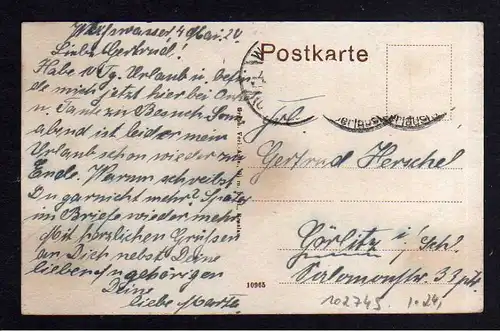 Weißwasser, 4. Mai. 20
Liebe Gertrud!
Habe 10 Tg. Urlaub u. befin-
de mich jetzt hier bei Onkel
u. Tante zu Besuch. Sonn-
abend ist leider mein
Urlaub schon wieder zu
Ende. Warum schreibst
Du garnicht mehr? Später
im Briefe wieder mehr.
Mit herzlichen Grüßen
an Dich nebst Deine
lieben Angehörigen
Deine
liebe Martha
Postkarte
Frl.
Gertrud Herschel
Görlitz i/Schl.
Salomonstr. 33 ptr.
10965
102745 10.24,